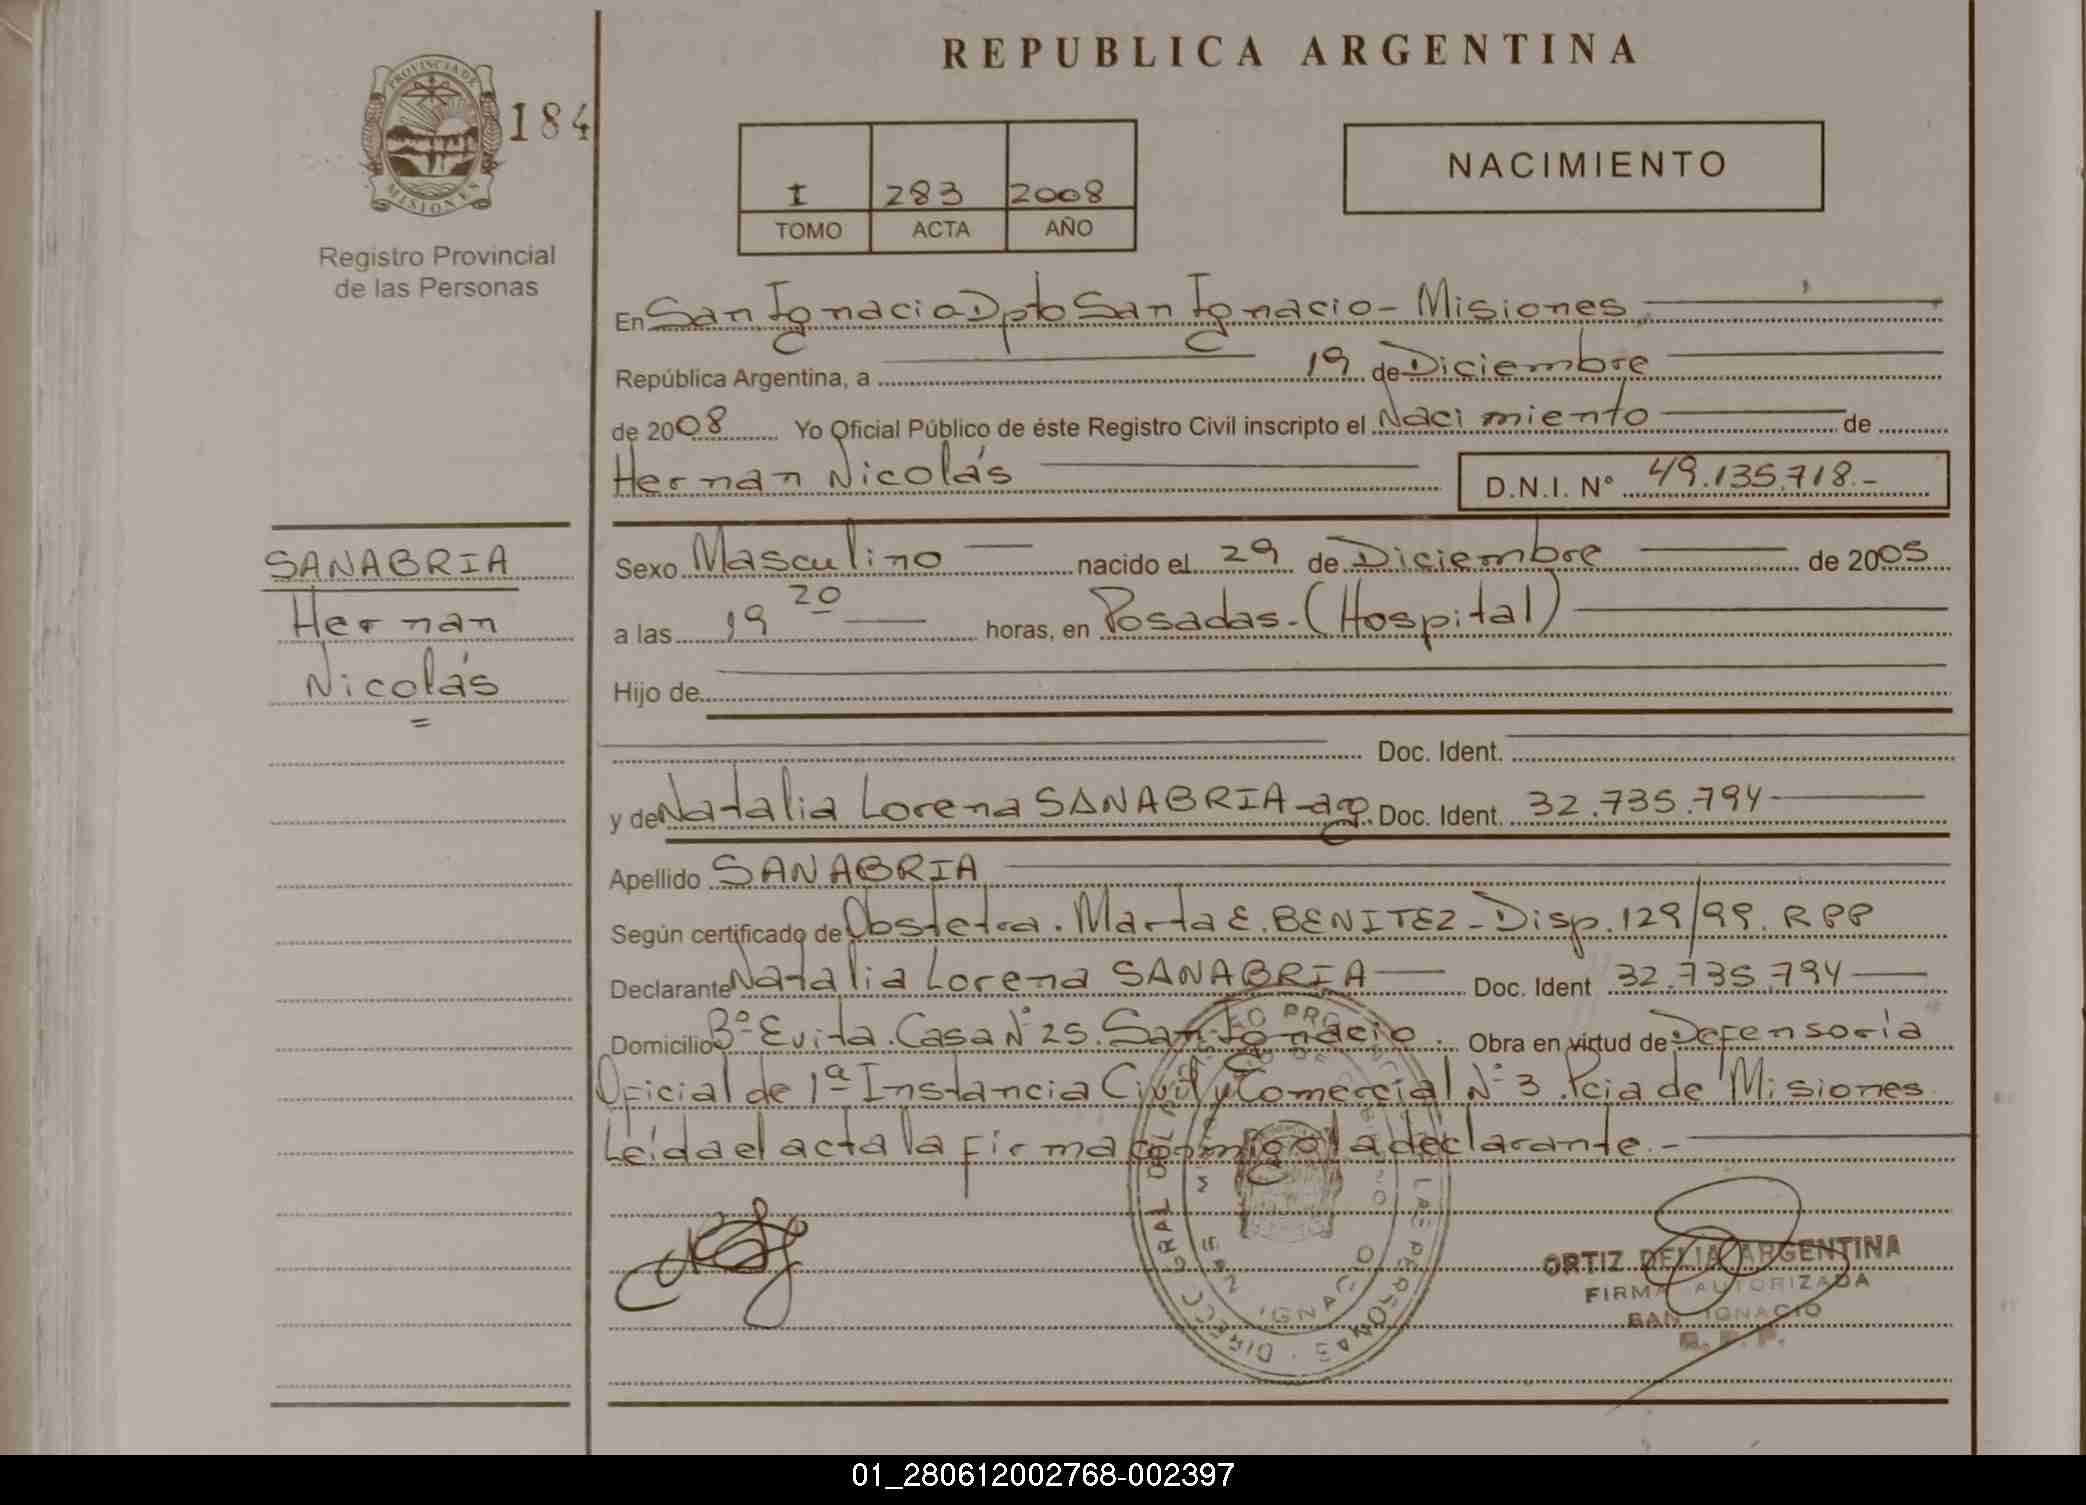 REPUBLICA ARGENTINA
PROVINCIA DE
MISIONES
184
Registro Provincial
de las Personas
I 283 2008
TOMO ACTA AÑO
NACIMIENTO
En San Ignacio Dpto San Ignacio - Misiones
República Argentina, a 19 de Diciembre
de 2008 Yo Oficial Público de éste Registro Civil inscripto el Nacimiento de
Hernan Nicolás D.N.I. N° 49.135.718.-
SANABRIA
Hernan
Nicolás
Sexo Masculino nacido el 29 de Diciembre de 2005
a las 19 20 horas, en Posadas. (Hospital)
Hijo de
Doc. Ident.
y de Natalia Lorena SANABRIA - arg. Doc. Ident. 32.735.794
Apellido SANABRIA
Según certificado de Obstetra. Marta E. BENITEZ - Disp. 129/99. RPP
Declarante Natalia Lorena SANABRIA Doc. Ident 32.735.794
Domicilio Bº Evita. Casa Nº 25. San Ignacio. Obra en virtud de Defensoría
Oficial de 1ª Instancia Civil y Comercial Nº 3. Pcia de Misiones
Leída el acta la firma conmigo la declarante.-
ORTIZ DELIA ARGENTINA
FIRMA AUTORIZADA
SAN IGNACIO
R. P. P.
01_280612002768-002397